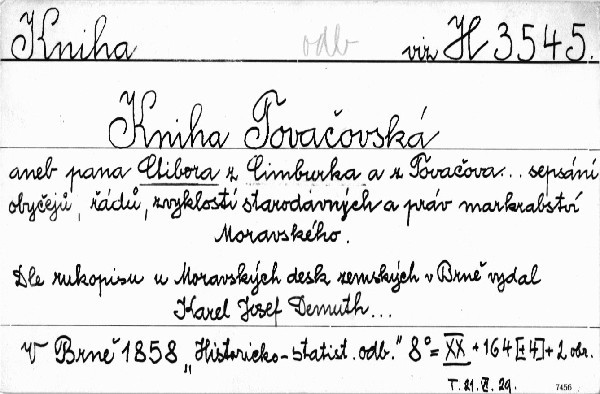 Kniha odb viz H 3545.
Kniha Tovačovská
aneb pana Ctibora z Cimburka a z Tovačova... sepsání
obyčejů, řádů, zvyklostí starodávných a práv markrabství
Moravského.
Dle rukopisu u Moravských desk zemských v Brně vydal
Karel Josef Demuth...
V Brně 1858 „Historicko-statist. odb." 8° = XX + 164 [+4] + 2 obr.
T. 21. VI. 29. 7456